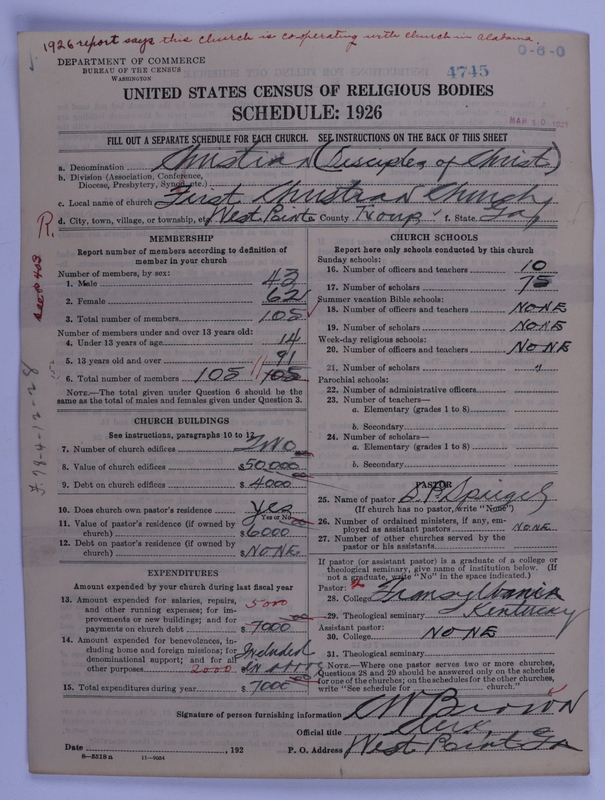 1926 report says this church is cooperating with church in Alabama.
0-6-0
DEPARTMENT OF COMMERCE
BUREAU OF THE CENSUS
WASHINGTON
4745
UNITED STATES CENSUS OF RELIGIOUS BODIES
SCHEDULE: 1926
FILL OUT A SEPARATE SCHEDULE FOR EACH CHURCH. SEE INSTRUCTIONS ON THE BACK OF THIS SHEET
a. Denomination Christian (Disciples of Christ)
b. Division (Association, Conference, Diocese, Presbytery, Synod, etc.)
c. Local name of church First Christian Church
d. City, town, village, or township, etc. West Point County Troup f. State Ga
R.
MEMBERSHIP
Report number of members according to definition of member in your church
Number of members, by sex:
1. Male 43
2. Female 62
3. Total number of members 105
Number of members under and over 13 years old:
4. Under 13 years of age 14
5. 13 years old and over 91
6. Total number of members 105 105
NOTE.—The total given under Question 6 should be the same as the total of males and females given under Question 3.
CHURCH BUILDINGS
See instructions, paragraphs 10 to 12
7. Number of church edifices Two
8. Value of church edifices $50,000
9. Debt on church edifices $4000
10. Does church own pastor's residence Yes
Yes or No
11. Value of pastor's residence (if owned by church) $6000
12. Debt on pastor's residence (if owned by church) $NONE
EXPENDITURES
Amount expended by your church during last fiscal year
13. Amount expended for salaries, repairs, and other running expenses; for improvements or new buildings; and for payments on church debt 5000 $7000
14. Amount expended for benevolences, including home and foreign missions; for denominational support; and for all other purposes 2000 Included in above
15. Total expenditures during year $7000
CHURCH SCHOOLS
Report here only schools conducted by this church
Sunday schools:
16. Number of officers and teachers 10
17. Number of scholars 75
Summer vacation Bible schools:
18. Number of officers and teachers NONE
19. Number of scholars NONE
Week-day religious schools:
20. Number of officers and teachers NONE
21. Number of scholars "
Parochial schools:
22. Number of administrative officers
23. Number of teachers—
a. Elementary (grades 1 to 8)
b. Secondary
24. Number of scholars—
a. Elementary (grades 1 to 8)
b. Secondary
PASTOR
25. Name of pastor O. P. Spiegel
(If church has no pastor, write "None")
26. Number of ordained ministers, if any, employed as assistant pastors NONE
27. Number of other churches served by the pastor or his assistants
If pastor (or assistant pastor) is a graduate of a college or theological seminary, give name of institution below. (If not a graduate, write "No" in the space indicated.)
Pastor:
28. College Transylvania
29. Theological seminary Kentucky
Assistant pastor:
30. College NONE
31. Theological seminary
NOTE.—Where one pastor serves two or more churches, Questions 28 and 29 should be answered only on the schedule for one of the churches; on the schedules for the other churches, write "See schedule for church."
Signature of person furnishing information W Brown
Official title Clerk
Date , 192
P. O. Address West Point Ga
8—5518a 11—9064